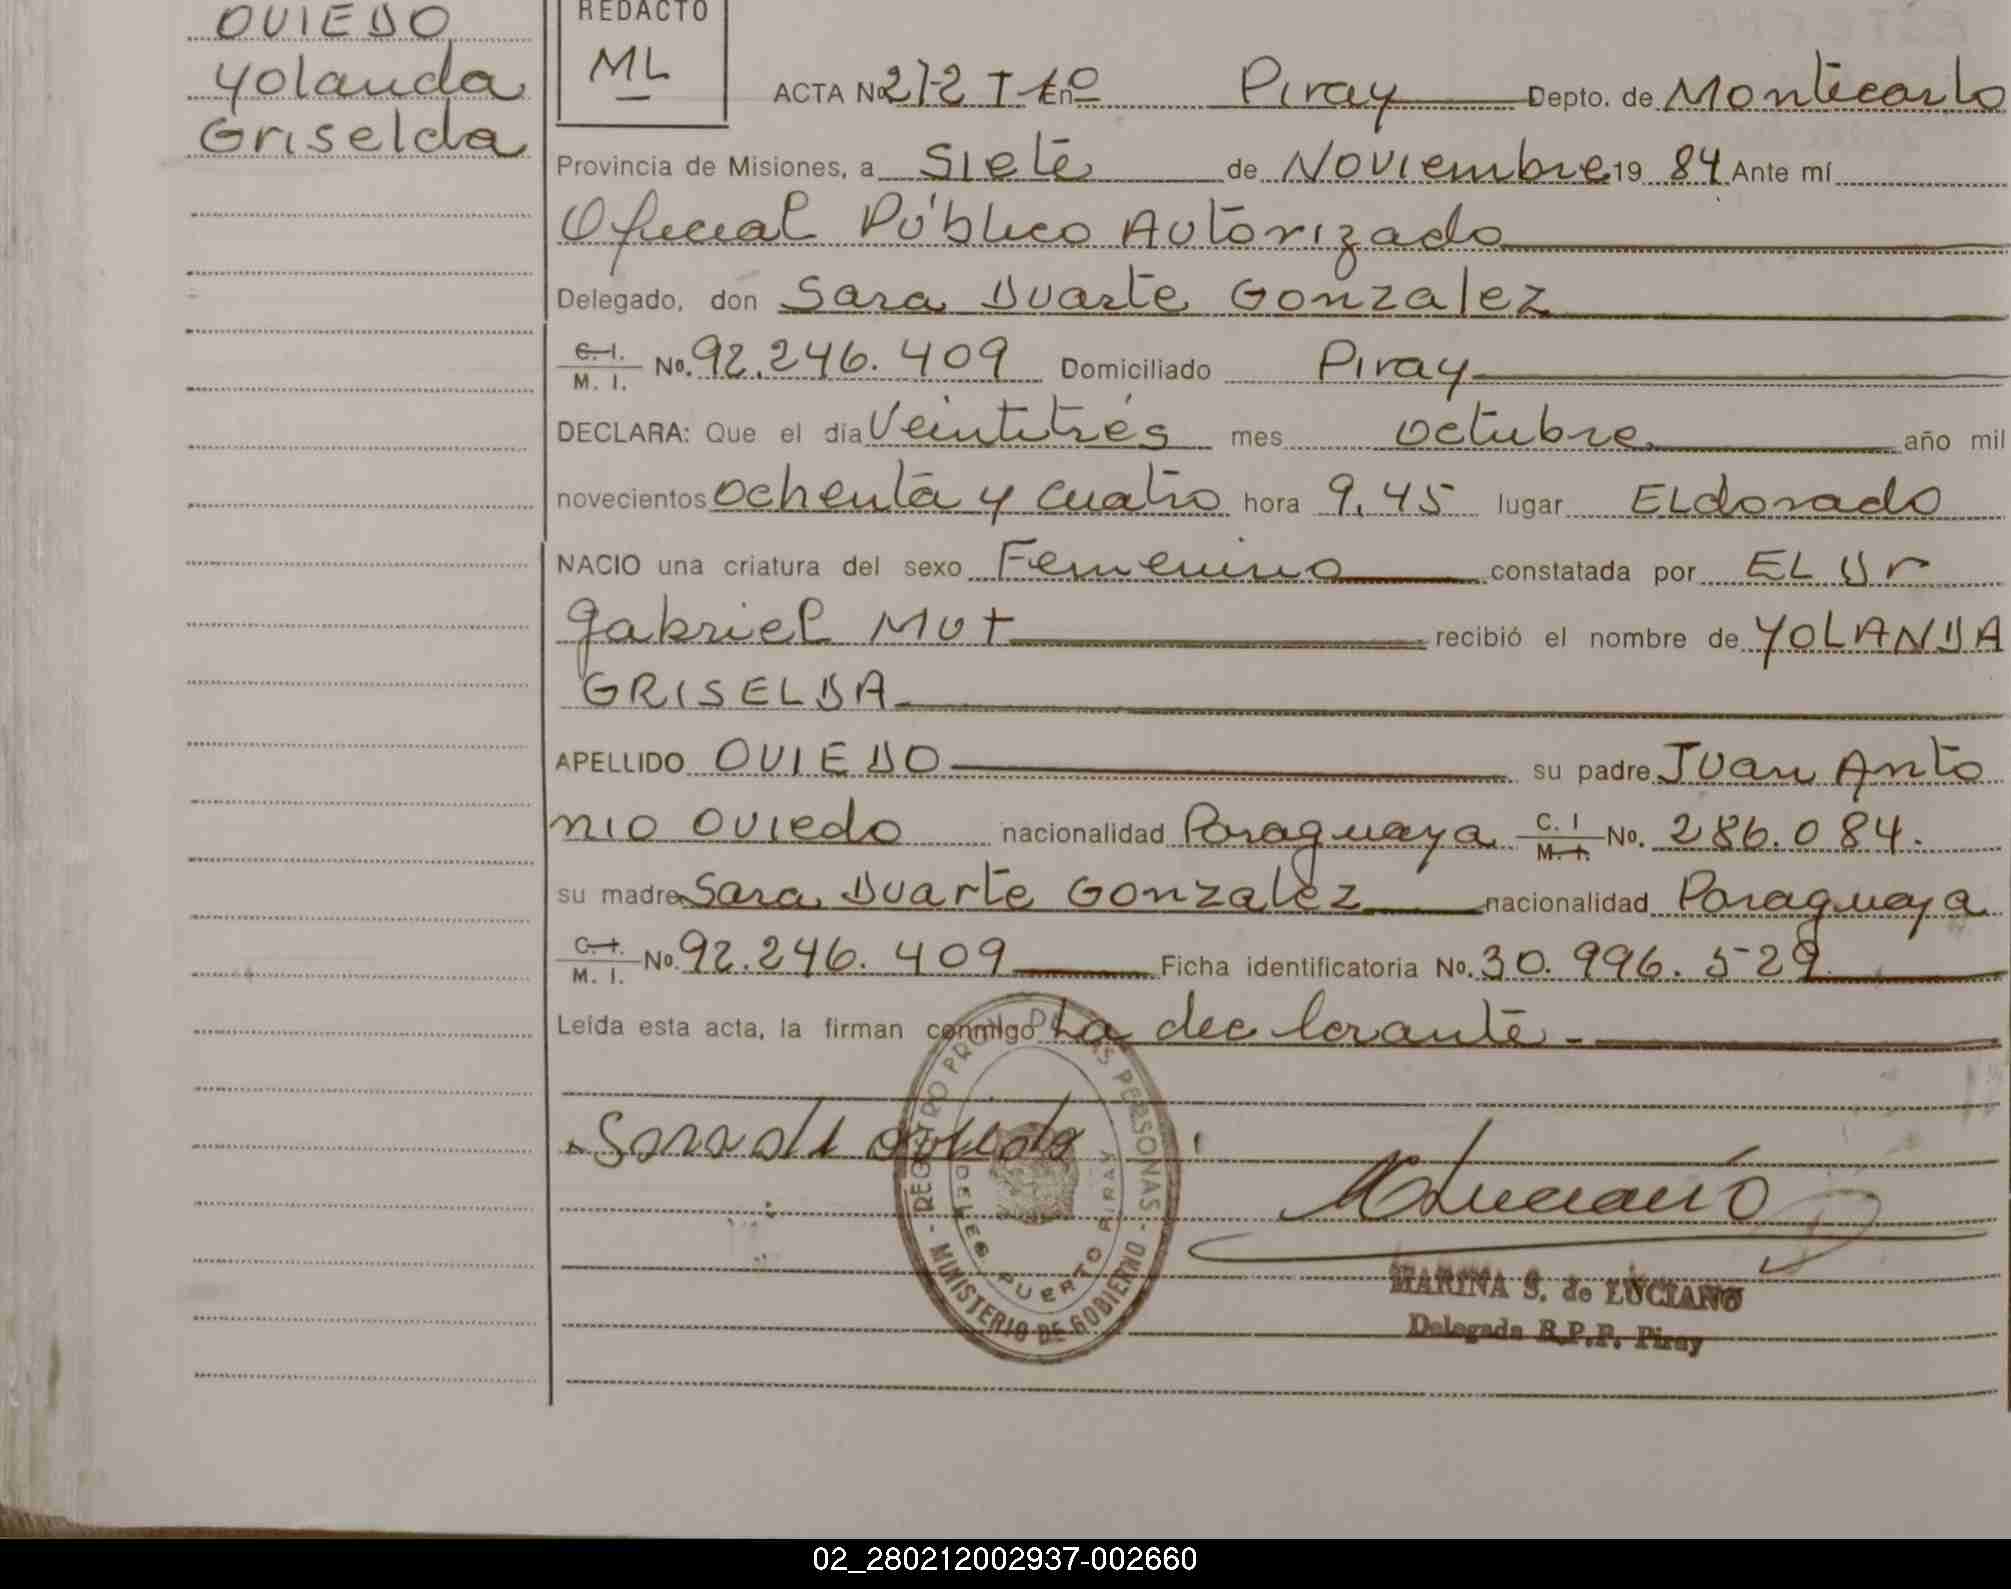 OVIEDO
Yolanda
Griselda
REDACTO
ML
ACTA Nº 212 T 1º En Piray Depto. de Montecarlo
Provincia de Misiones, a Siete de Noviembre 19 84 Ante mí
Oficial Público Autorizado
Delegado, don Sara Duarte Gonzalez
C. I. M. I. No. 92.246.409 Domiciliado Piray
DECLARA: Que el día Veintitrés mes octubre año mil
novecientos ochenta y cuatro hora 9,45 lugar ELdorado
NACIO una criatura del sexo Femenino constatada por EL Dr
gabriel Mut recibió el nombre de YOLANDA
GRISELDA
APELLIDO OVIEDO su padre Juan Anto
nio Oviedo nacionalidad Paraguaya C. I M. I. No. 286.084.
su madre Sara Duarte Gonzalez nacionalidad Paraguaya
C. I. M. I. No. 92.246.409 Ficha identificatoria No. 30.996.529
Leída esta acta, la firman conmigo La declarante.-
Sara de oviedo
MLuciano
MARINA S. de LUCIANO
Delegada R.P.P. Piray
REGISTRO PROV. DE LAS PERSONAS - MINISTERIO DE GOBIERNO -
DELEG. PUERTO PIRAY
02_280212002937-002660